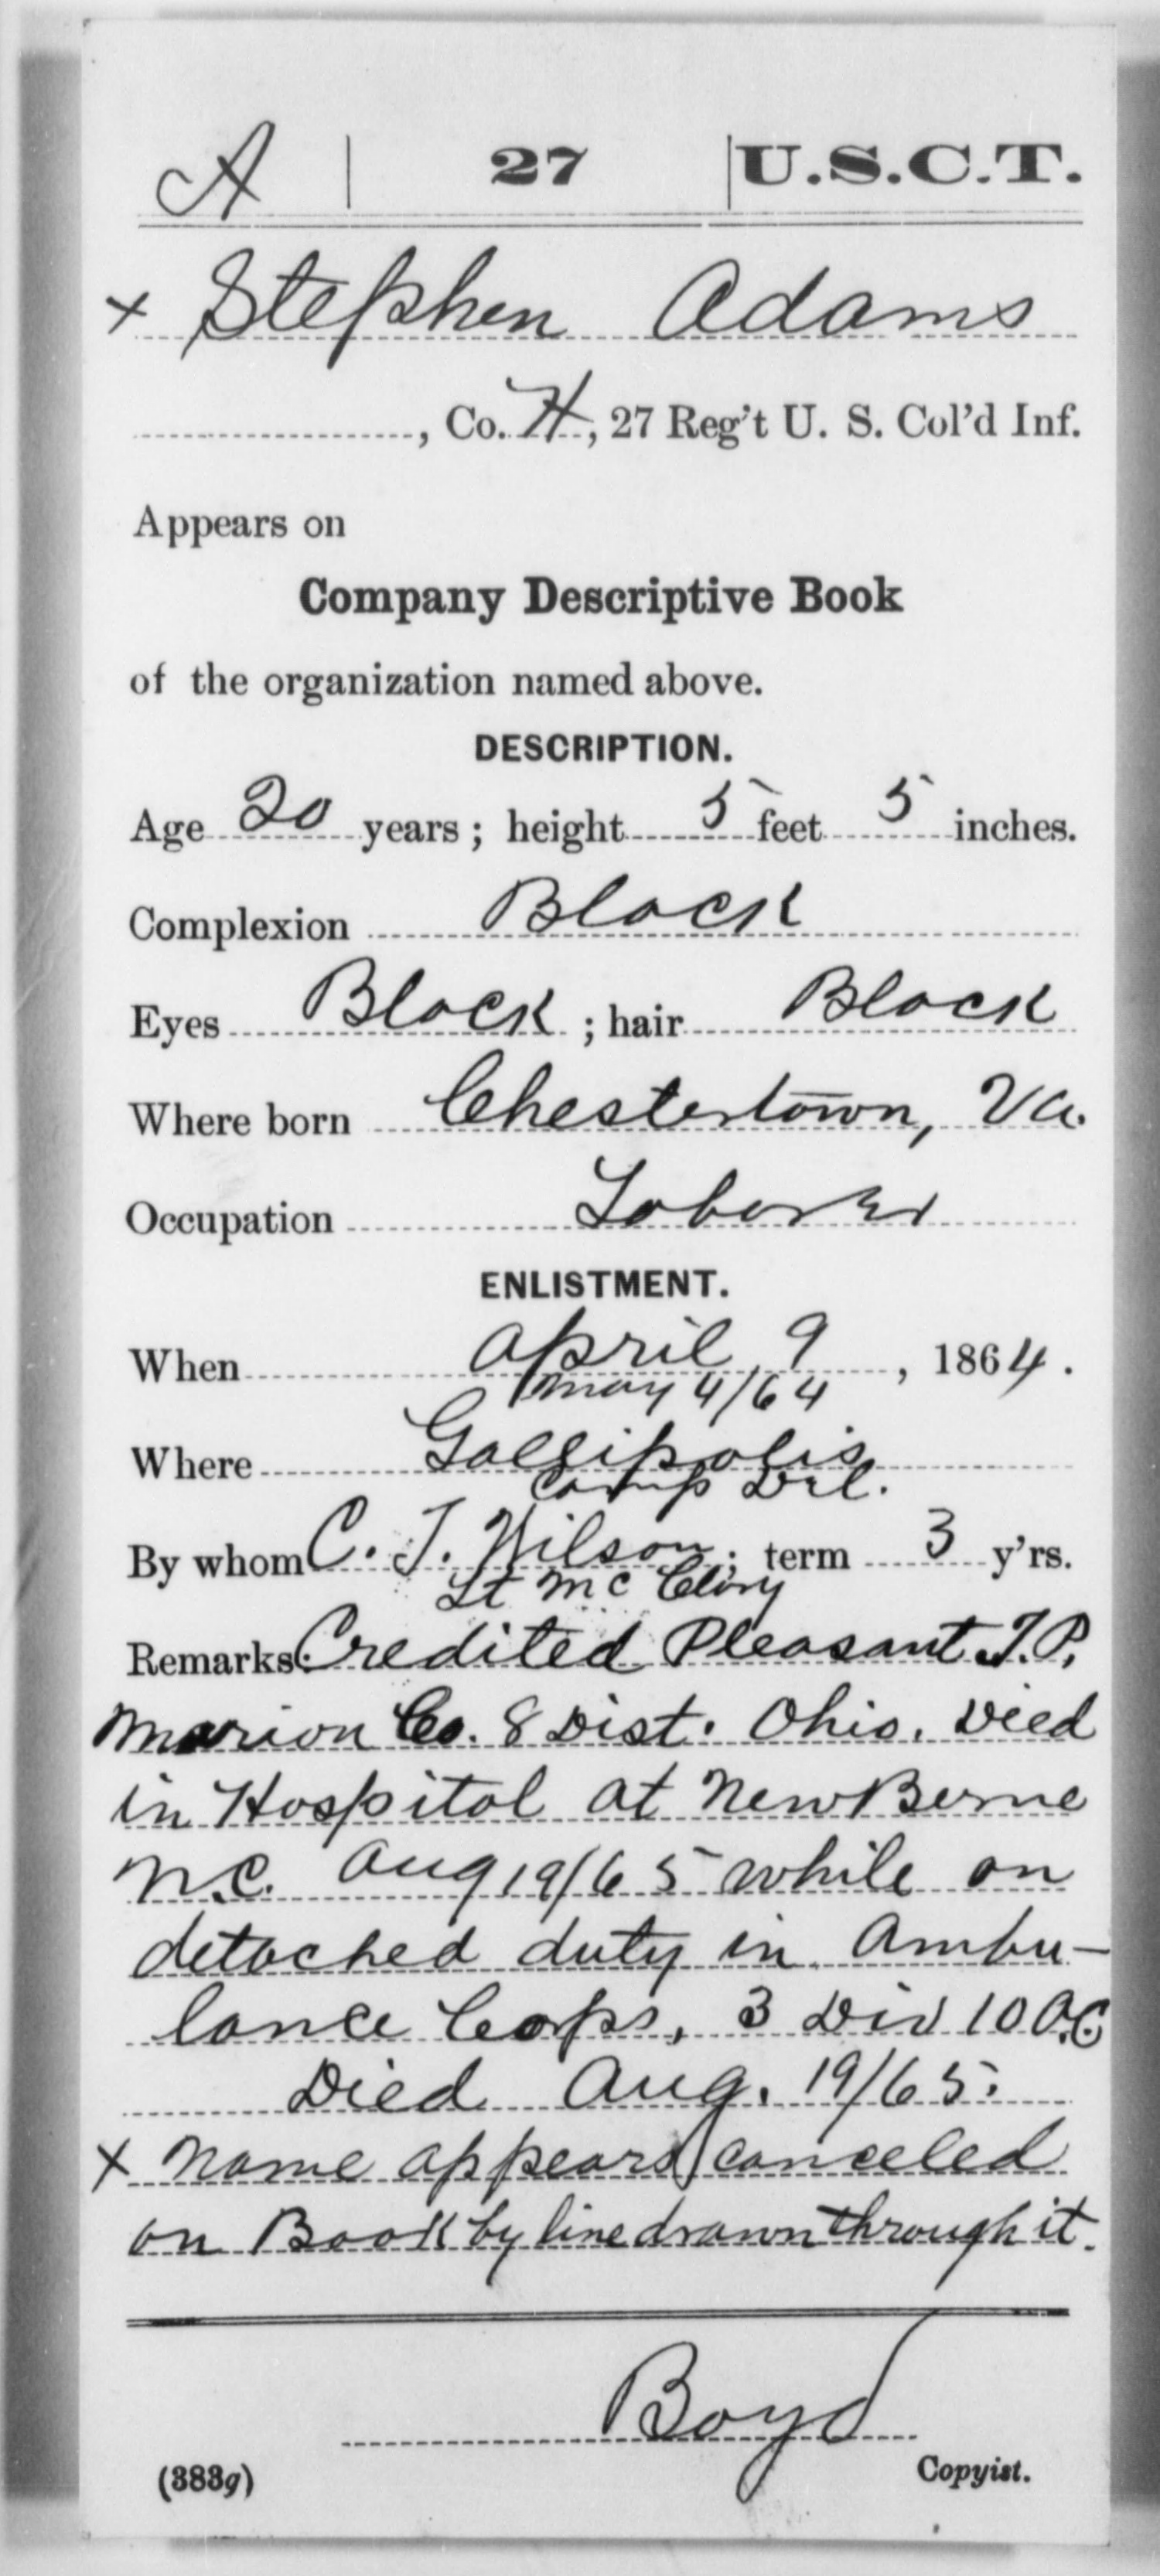 A | 27 | U.S.C.T.
x Stephen Adams
, Co. H, 27 Reg't U. S. Col'd Inf.
Appears on
Company Descriptive Book
of the organization named above.
DESCRIPTION.
Age 20 years; height 5 feet 5 inches.
Complexion Black
Eyes Black; hair Black
Where born Chestertown, Va.
Occupation Laborer
ENLISTMENT.
When April 9, 1864.
May 4/64
Where Gallipolis
Camp Del.
By whom C. J. Wilson; term 3 y'rs.
Lt Mc
Remarks: Credited Pleasant T.P.
Marion Co. 8 Dist. Ohio. Died
in Hospital at New Berne
N.C. Aug 19/65 while on
detached duty in Ambu-
lance Corps, 3 Div 10 A.C
Died Aug. 19/65.
x Name appears canceled
on Book by line drawn through it.
Boyd
(383g) Copyist.